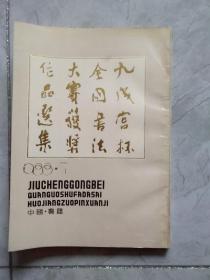 九成宮杯
全国书法
大赛獲奖
作品選集
1988·7
JIUCHENGGONGBEI
QUANGUOSHUFADASAI
HUOJIANGZUOPINXUANJI
中國·麟遊